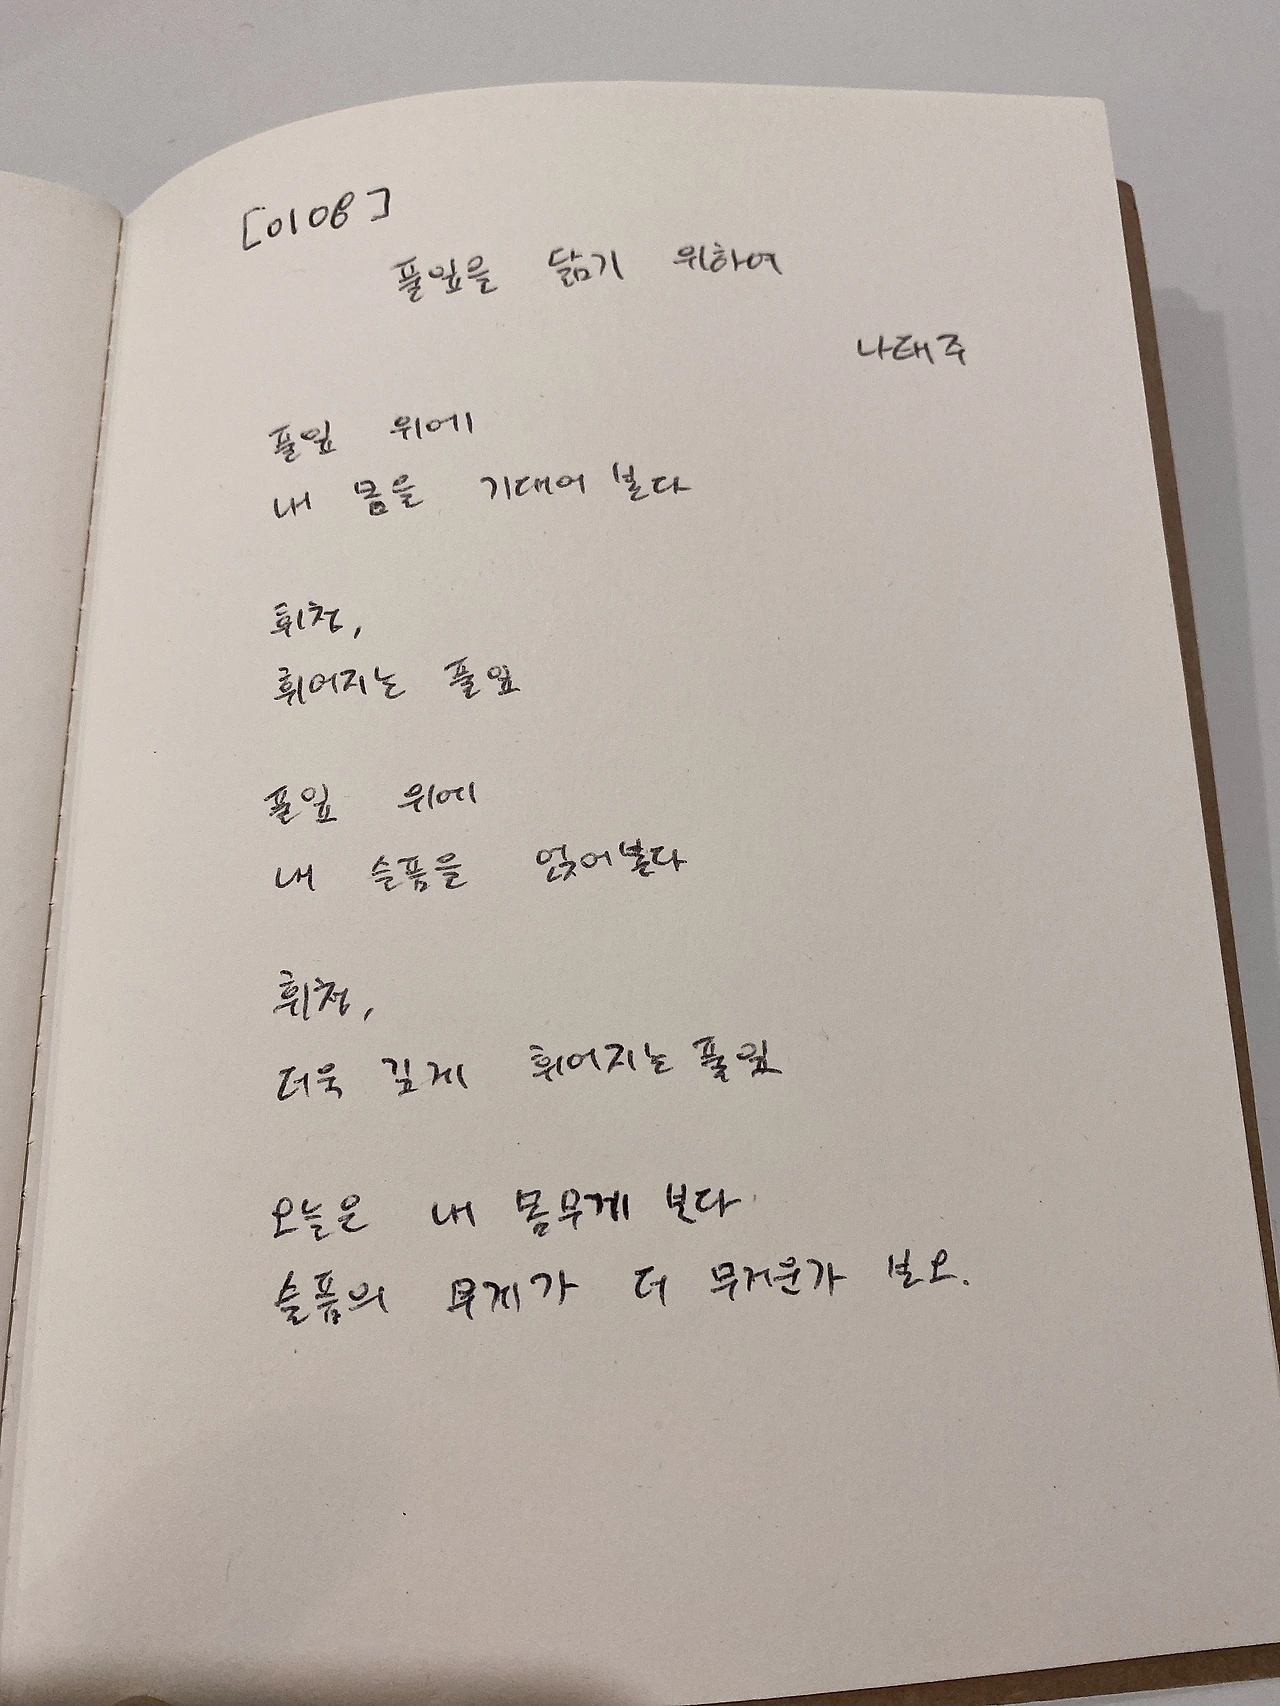 [0108]
풀잎을 닮기 위하여
나태주
풀잎 위에
내 몸을 기대어 본다
휘청,
휘어지는 풀잎
풀잎 위에
내 슬픔을 얹어본다
휘청,
더욱 깊게 휘어지는 풀잎
오늘은 내 몸무게 보다
슬픔의 무게가 더 무거운가 보오.